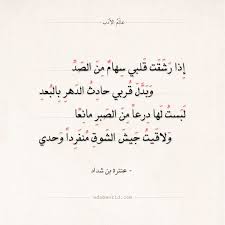 عالم الأدب
إذا رشقت قلبي سهامٌ من الصدِّ
وبدّل قربي حادثُ الدهرِ بالبُعدِ
لبست لها درعاً من الصبرِ مانعًا
ولاقيتُ جيش الشوقِ منفرداً وحدي
- عنترة بن شداد -
adabworld.com